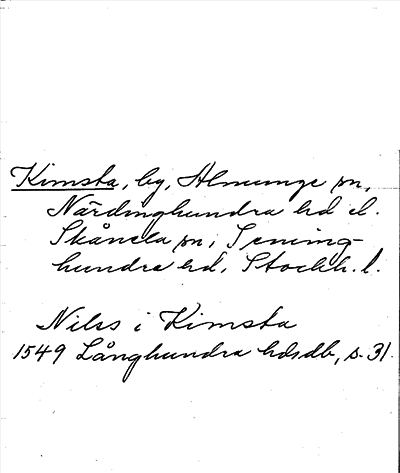 Kimsta, by, Almunge sn,
Närdinghundra hd el.
Skånela sn, Seming-
hundra hd, Stockh. l.
Nils i Kimsta
1549 Långhundra hdsdb, s. 31.